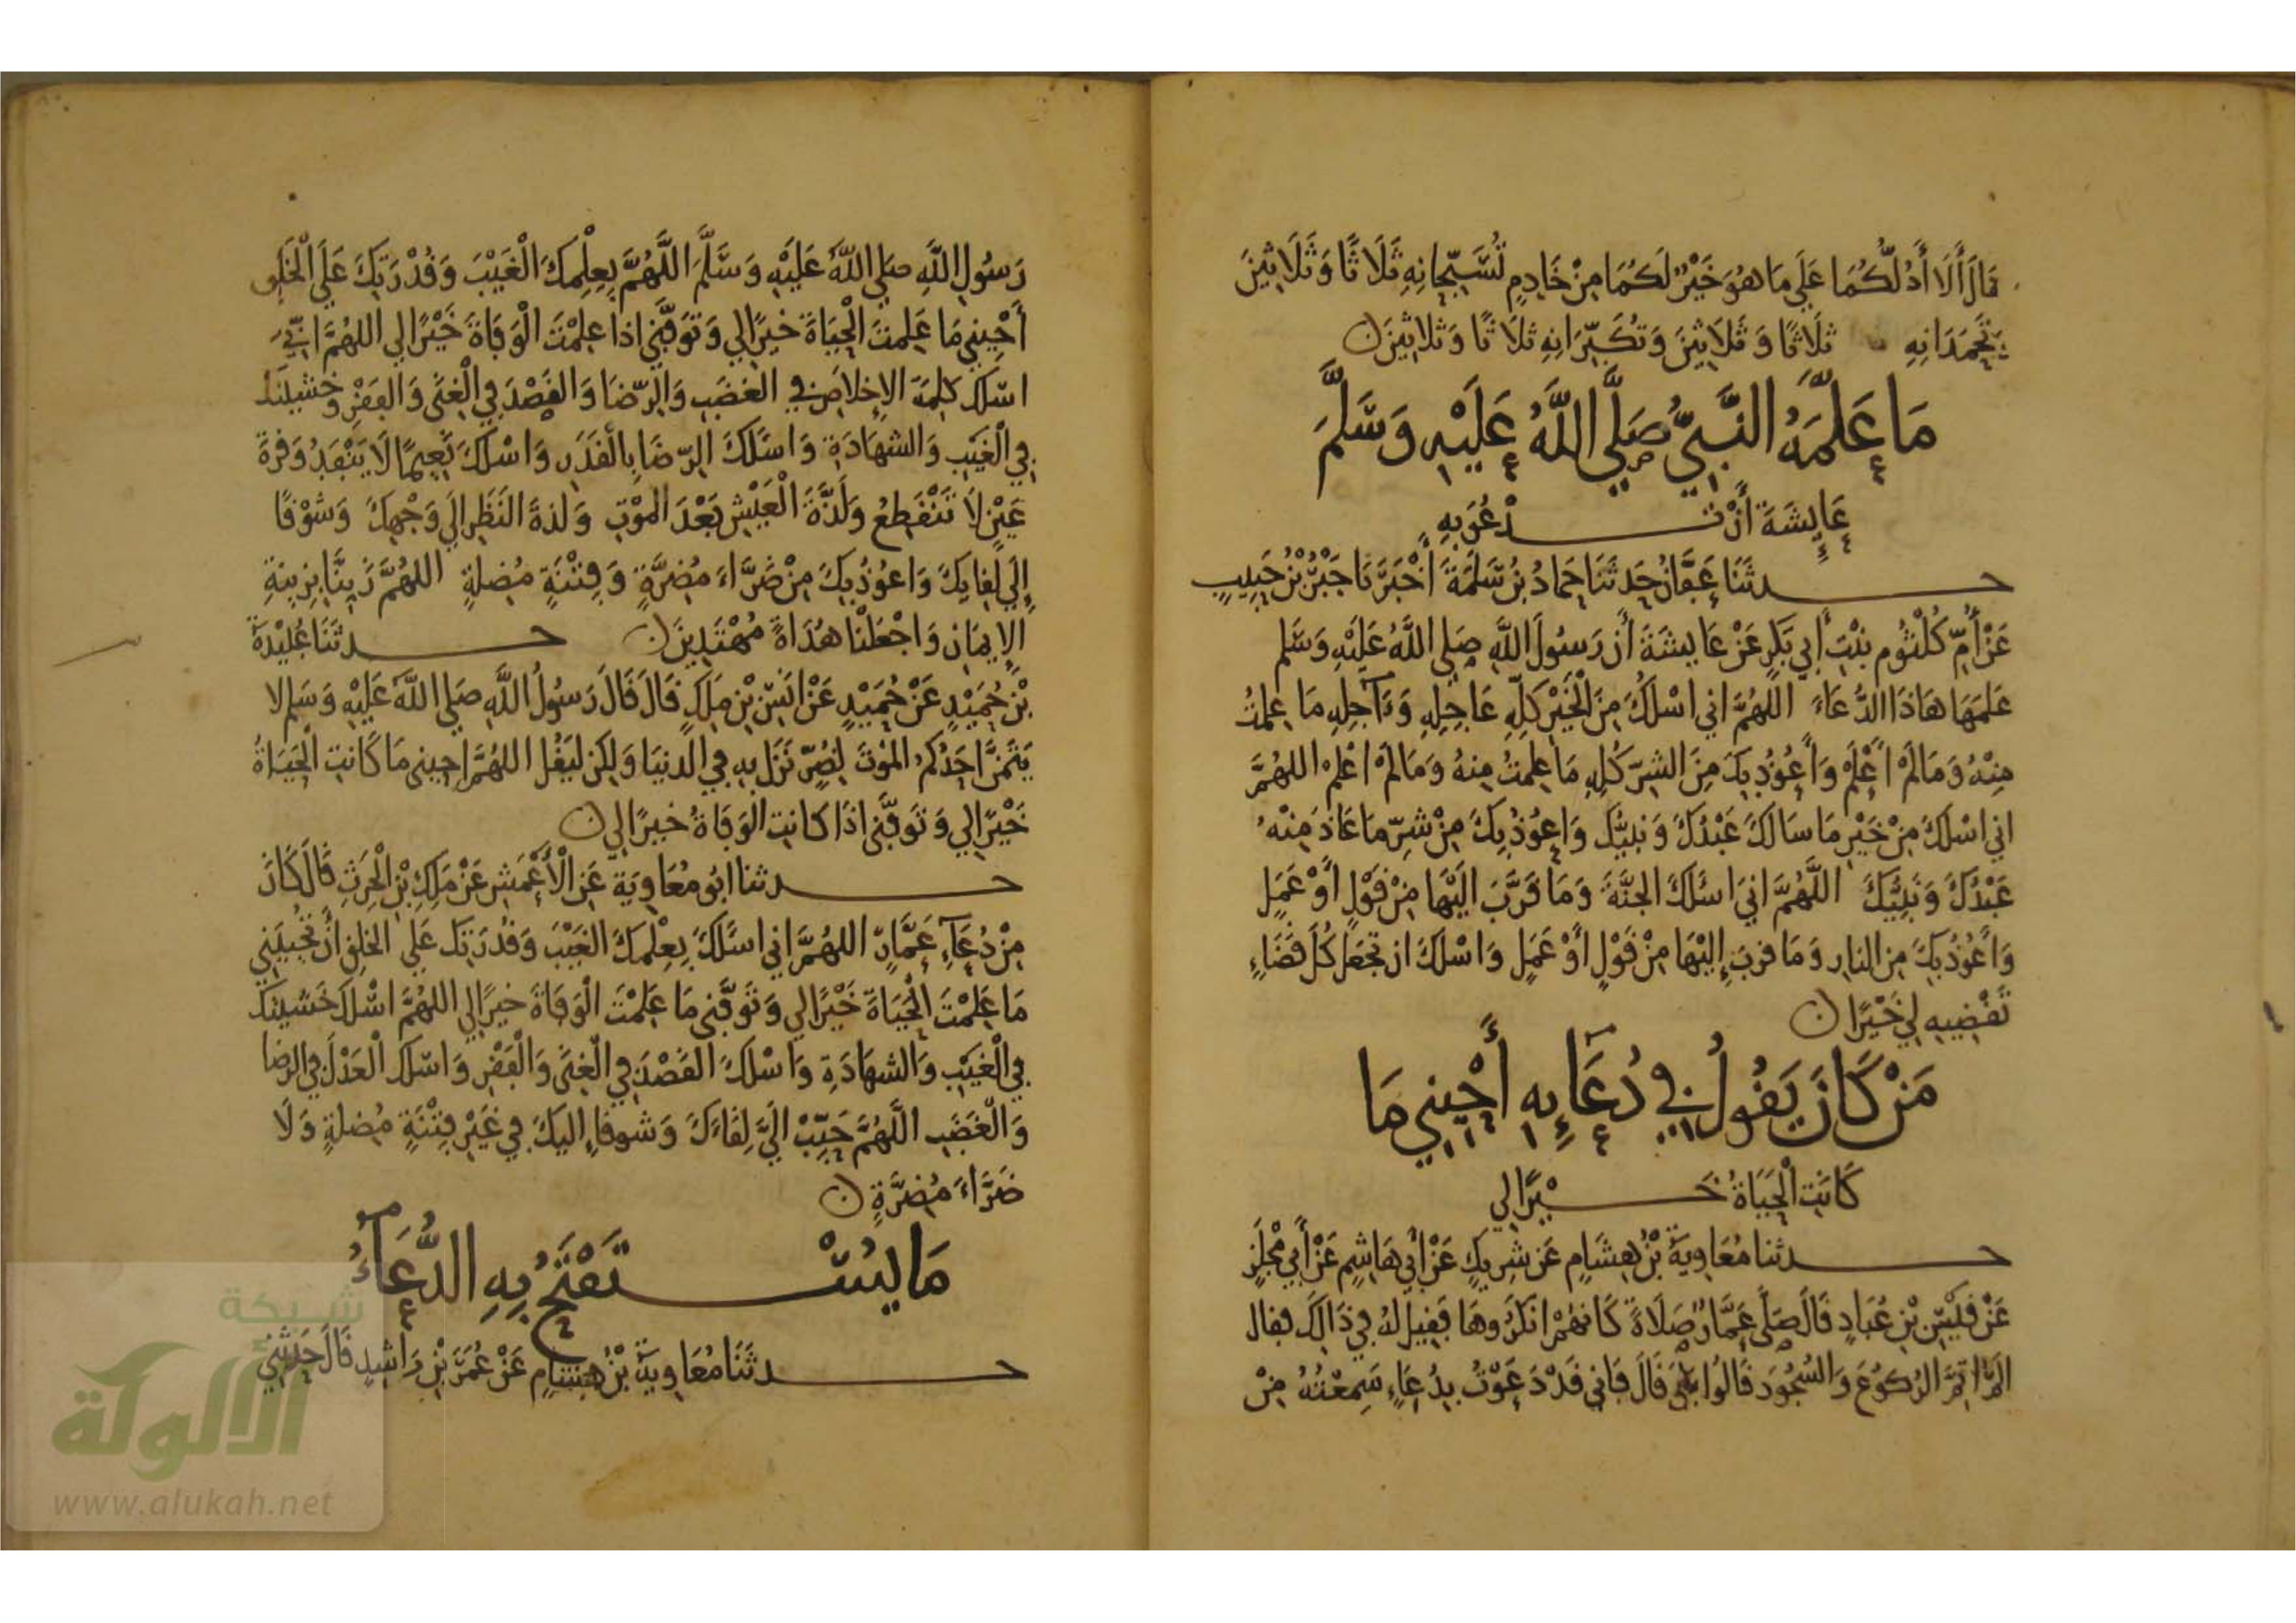 قَالَ أَلَا أَدُلُّكُمَا عَلَي مَا هُوَ خَيْرٌ لَكُمَا مِنْ خَادِمٍ تُسَبِّحَانِهِ ثَلَاثًا وَثَلَاثِينَ
وَتَحْمَدَانِهِ ثَلَاثًا وَثَلَاثِينَ وَتُكَبِّرَانِهِ ثَلَاثًا وَثَلاثِينَ
مَا عَلَّمَهُ النَّبِيُّ صَلَّي اللَّهُ عَلَيْهِ وَسَلَّمَ
عَايِشَةَ أَنْ تَدْعُوَ بِهِ
حدثَنَا عَفَّانُ حَدثَنَا حَمادُ بْنُ سَلَمَةَ أَخْبَرَنَا جَبْرُ بْنُ حَبِيبٍ
عَنْ أُمِّ كُلْثُومِ بِنْتِ أَبِي بَكرٍ عَنْ عَايِشَةَ أَن رَسُولَ اللَّهِ صَلي اللَّهُ عَلَيْهِ وَسَلم
عَلمَهَا هَاذَا الدُّعَاءَ اللهُمَّ اني اسْلُكَ مِنَ الْخَيْرِ كلِّهِ عَاجِلِهِ وَءَاجِلِهِ مَا عَلِمْتُ
مِنْهُ وَمَا لَمْ أَعْلَمْ وَأَعُوذُ بِكَ مِنَ الشرِّ كُلِهِ مَا عَلِمْتُ مِنهُ وَمَا لَمْ اعْلَمْ اللهُمَّ
اني اسْلكَ مِنْ خَيْرِ مَا سَالكَ عَبْدُكَ وَنَبيُّكَ وَاعوُذُ بِكَ مِنْ شرِّ مَا عَاذَ مِنْهُ
عَبْدُكَ وَنَبِيُّكَ اللَّهُمَّ انيَ اسئَلكَ الجنَّةَ وَمَا قَرَّبَ الَيْهَا مِنْ قَوْلٍ أَوْ عَمَلٍ
وَأَعُوذُ بِكَ مِن النارِ وَمَا قربَ إِلَيْهَا مِنْ قَوْلٍ أَوْ عَمَلٍ وَاسْلكَ ان تَجعَل كُلَّ قَضَاءٍ
تَقْضِيهِ لِي خَيْرًا
مَنْ كَانَ يَقُولُ فِي دُعَآئِهِ أَحْيِنِي مَا
كَانَتِ الْحَيَاةُ خَيْرًا لِي
حدثنا مُعَاوِيةُ بْنُ هِشَامٍ عَن شَرِيكٍ عَنْ أَبِي هَاشِمٍ عَنْ أَبِي مِجْلَزٍ
عَنْ قَيْسِ بْنِ عُبَادٍ قَالَ صَلَّى عَمَّارٌ صَلَاةً كَانهُمْ انكَرُوهَا فَقِيلَ لهُ فِي ذَالِكَ فقال
الَمْ اتِمَّ الرُّكوُعَ وَالسُّجُودَ قَالُوا بَلَى قَالَ فَاني قَدْ دَعَوْتُ بِدُعَاءٍ سَمِعْتُهُ مِنْ
رَسُولِ اللَّهِ صلي اللهُ عَلَيْهِ وَسَلَّمَ اللَّهُمَّ بِعِلمِكَ الْغَيْبَ وَقُدْرَتِكَ عَلَى الْخَلْقِ
أَحْيِنِي مَا عَلِمتَ الْحَيَاةَ خيرًا لِي وَتَوَفَّنِي اذا عَلِمْتَ الْوَفَاةَ خَيْرًا لي اللهُمَّ انِّي
اسْلك كلِمَةَ الإِخلاصِ فِي الغضَبِ وَالرِّضَا وَالقَصْدَ فِي الْغِنَى وَالفَقْرِ وَخَشيَتَكَ
فِي الْغَيْبِ وَالشهَادَةِ وَاسئَلكَ الرِّضَا بِالْقَدَرِ وَاسْلكَ نَعِيمًا لَا يَنْفَدُ وَقرةَ
عَيْنٍ لَا تَنْقَطِعُ وَلَذَّةَ الْعَيْشِ بَعْدَ المَوْتِ وَلذةَ النَظَرِ الَي وَجْهِكَ وَشَوْقًا
إِلَي لِقَايِكَ وَاعوُذُ بِكَ مِنْ ضَرَّاءَ مُضِرَّةٍ وَفِتْنَةٍ مُضلةٍ اللهُمَّ زَيِنَّا بِزِينَةِ
الإِيمَانِ وَاجْعَلْنَا هُدَاةً مُهْتَدِينَ حدثَنَا عُبَيْدَةُ
بْنُ حُمَيْدٍ عَنْ حُمَيْدٍ عَنْ انَسِ بْنِ مَلكٍ قَالَ قَالَ رَسوُلُ اللَّهِ صَلي اللهُ عَلَيْهِ وَسَلم لا
يَتَمَنَّ احَدُكُمُ المَوْتَ لِضُرٍّ نَزَلَ بِهِ فِي الدنيَا وَلَكِنْ لِيَقُلْ اللهُمَّ احيِنِي مَا كَانتِ الْحَيَاةُ
خَيْرًا لِي وَتَوَفَّنِي اذَا كانتِ الْوَفَاةُ خيرًا لِي
حدثنا ابُو مُعَاوِيَةَ عَنِ الْأَعْمَشِ عَنْ مَلِكِ بْنِ الْحرِثِ قَالَ كَانَ
مِنْ دُعَآءِ عَمَّارٍ اللهُمَّ اني اسئَلكَ بِعِلْمِكَ الغَيْبَ وَقُدْرَتِكَ عَلَى الخلقِ أَنْ تُحْيِيَنِي
مَا عَلِمْتَ الْحَيَاةَ خَيْرًا لي وَتَوَفَّنِي مَا عَلِمْتَ الْوَفَاةَ خيرًا لِي اللهُمَّ اسْلكَ خَشْيَتَكَ
فِي الْغَيْبِ وَالشهَادَةِ وَاسْلكَ القَصْدَ فِي الْغِنَى وَالْفَقْرِ وَاسْلكَ الْعَدْلَ فِي الرِضَا
وَالْغَضَبِ اللَّهُمَّ حَبِّبْ الَيَّ لِقَاءَكَ وَشوقا إِليكَ فِي غَيْرِ فِتْنَةٍ مُضلةٍ وَلَا
ضَرَّاءَ مُضِرَّةٍ
مَا يُسْتَفْتَحُ بِهِ الدُّعَآءُ
حدثَنَا مُعَاوِيةُ بْنُ هِشَامٍ عَنْ عُمَرَ بْنِ رَاشِدٍ قَالَ حَدثَنِي
شبكة
الألوكة
www.alukah.net